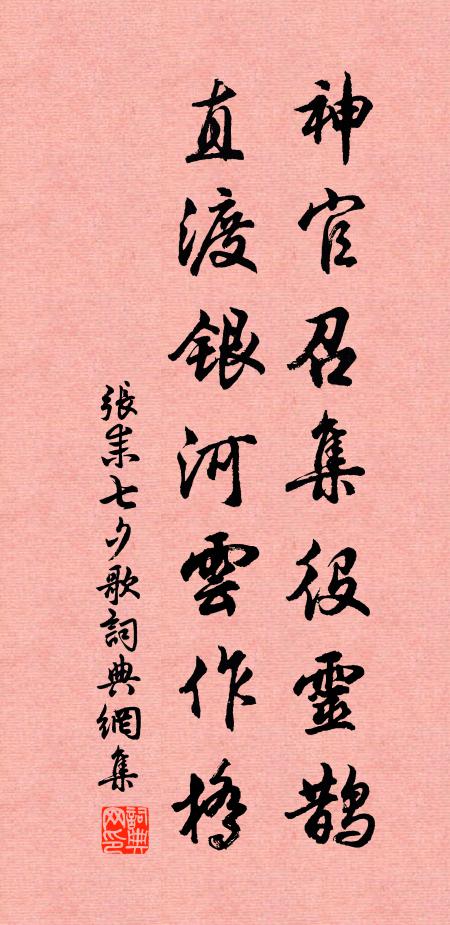 神官召集役靈鵲
直渡銀河雲作橋
張耒七夕歌詞典網集
詞典網印